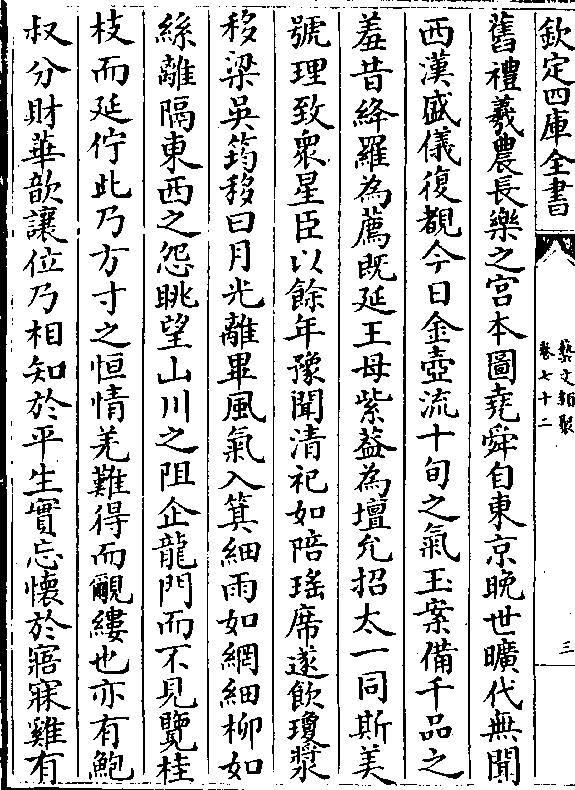 欽定四庫全書
藝文類聚
卷七十二
三
舊禮羲農長樂之宮本圖堯舜自東京晚世曠代無聞
西漢盛儀復覩今日金壺流十旬之氣玉案備千品之
羞昔絳羅為薦既延王母紫蓋為壇允招太一同斯美
號理致衆星臣以餘年豫聞清祀如陪瑤席遂飲瓊漿
移梁吳筠移曰月光離畢風氣入箕細雨如網細柳如
絲離隔東西之怨眺望山川之阻企龍門而不見覽桂
枝而延佇此乃方寸之恒情羌難得而覼縷也亦有鮑
叔分財華歆讓位乃相知於平生實忘懷於寤寐雞有